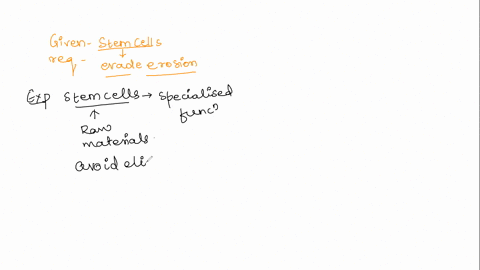 Given- Stem cells
req - evade erosion
Exp stem cells → specialised
func^n
↑
Raw
materials.
avoid eli